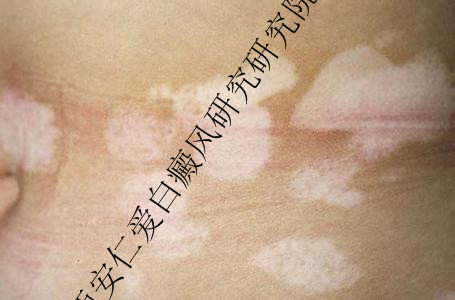 西安仁爱白癜风研究研究院